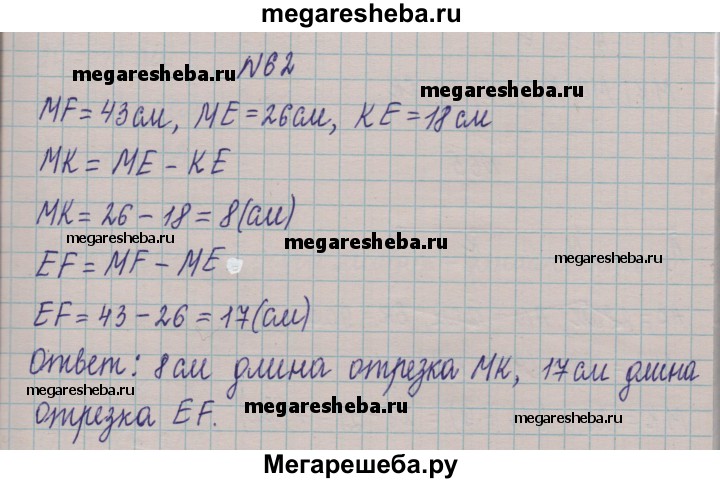 megaresheba.ru
megaresheba.ru N62 megaresheba.ru
MF = 43 см, ME = 26 см, KE = 18 см
MK = ME - KE megaresheba.ru
MK = 26 - 18 = 8 (см)
megaresheba.ru megaresheba.ru
EF = MF - ME megaresheba.ru
EF = 43 - 26 = 17 (см)
Ответ: 8 см длина отрезка MK, 17 см длина
megaresheba.ru megaresheba.ru megaresheba.ru
отрезка EF.
Мегарешеба.ру